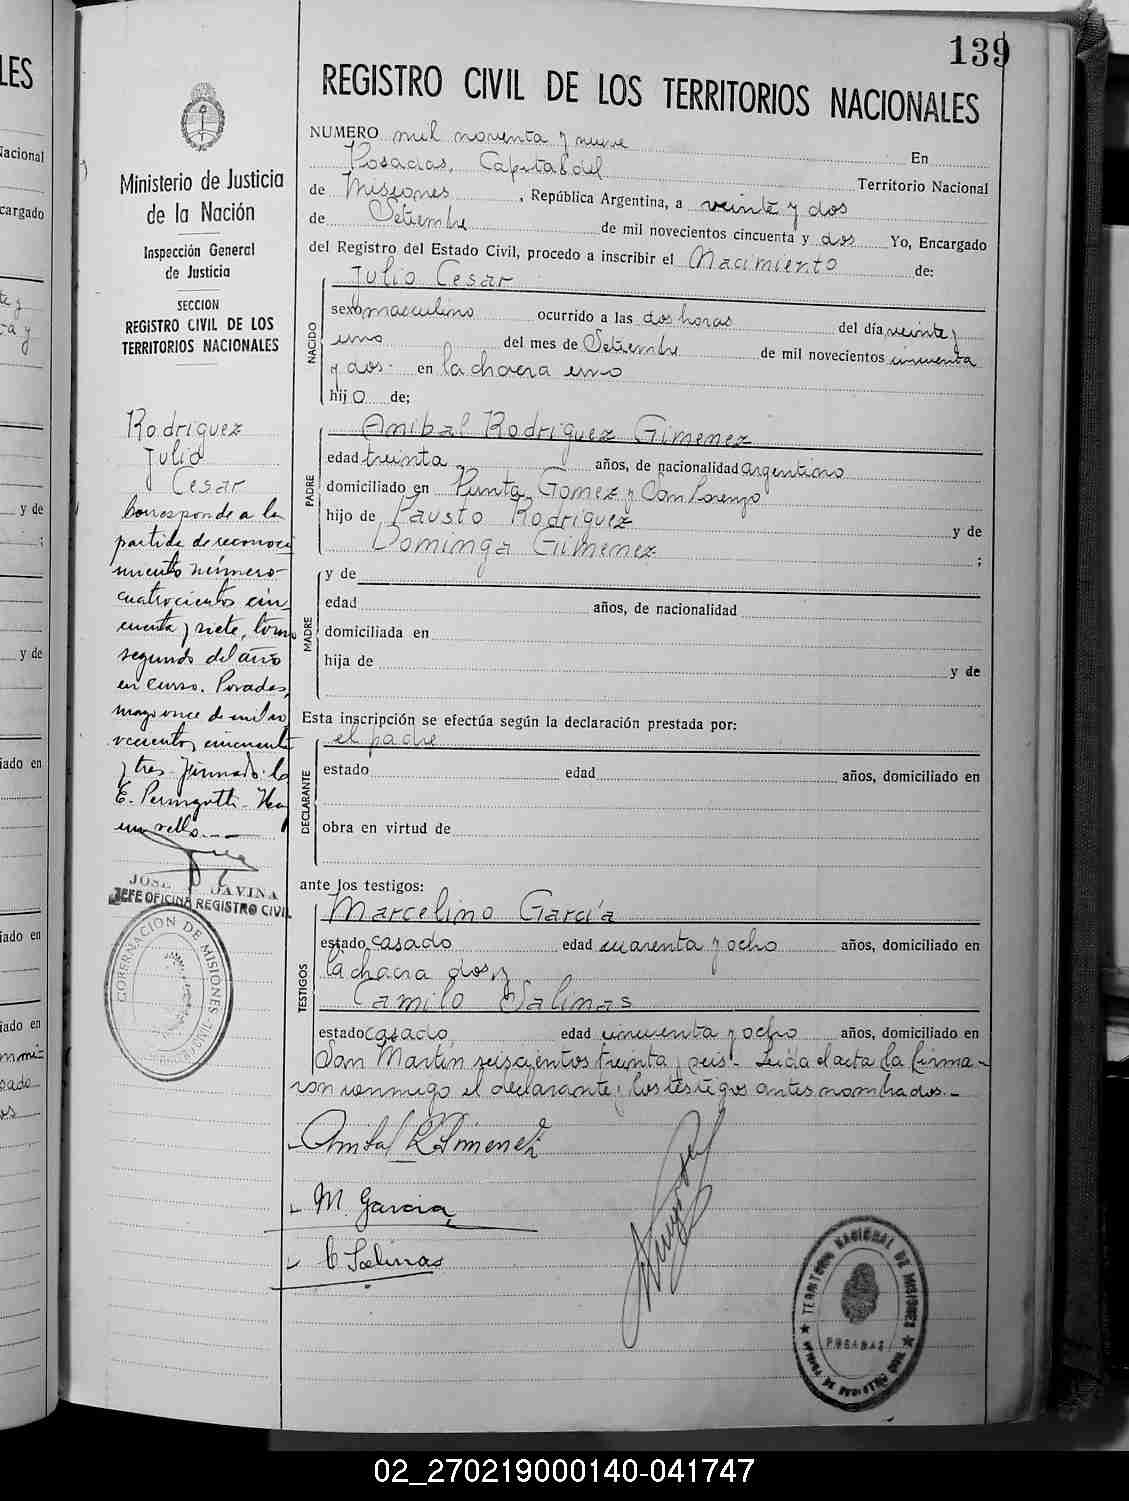 139
REGISTRO CIVIL DE LOS TERRITORIOS NACIONALES
Ministerio de Justicia
de la Nación
Inspección General
de Justicia
SECCION
REGISTRO CIVIL DE LOS
TERRITORIOS NACIONALES
Rodriguez
Julio
Cesar
Corresponde a la
partida de reconoci
miento número
cuatrocientos cin_
cuenta y siete, tomo
segundo del año
en curso. Posadas,
mayo once de mil no
vecientos cincuenta
y tres. Firmado: 
E. Hay
un sello.
JOSE JAVINA
JEFE OFICINA REGISTRO CIVIL
GOBERNACION DE MISIONES
NUMERO mil noventa y nueve En
Posadas, Capital del Territorio Nacional
de Misiones, República Argentina, a veinte y dos
de Setiembre de mil novecientos cincuenta y dos Yo, Encargado
del Registro del Estado Civil, procedo a inscribir el Nacimiento de:
Julio Cesar
NACIDO
sexo masculino ocurrido a las dos horas del día veinte y
uno del mes de Setiembre de mil novecientos cincuenta
y dos. en la chacra uno
hijo de;
Anibal Rodriguez Gimenez
PADRE
edad treinta años, de nacionalidad argentino
domiciliado en Punta Gomez y San Lorenzo
hijo de Fausto Rodriguez y de
Dominga Gimenez ;
MADRE
y de
edad años, de nacionalidad
domiciliada en
hija de y de
Esta inscripción se efectúa según la declaración prestada por:
el padre
DECLARANTE
estado edad años, domiciliado en
obra en virtud de
ante los testigos:
TESTIGOS
Marcelino García
estado casado edad cuarenta y ocho años, domiciliado en
la chacra dos, y
Camilo Salinas
estado casado edad cincuenta y ocho años, domiciliado en
San Martin seiscientos treinta y seis. Leída el acta la firma-
ron conmigo el declarante y los testigos antes nombrados.-
Anibal R Gimenez
M. Garcia
C Salinas
TERRITORIO NACIONAL DE MISIONES
POSADAS
02_270219000140-041747